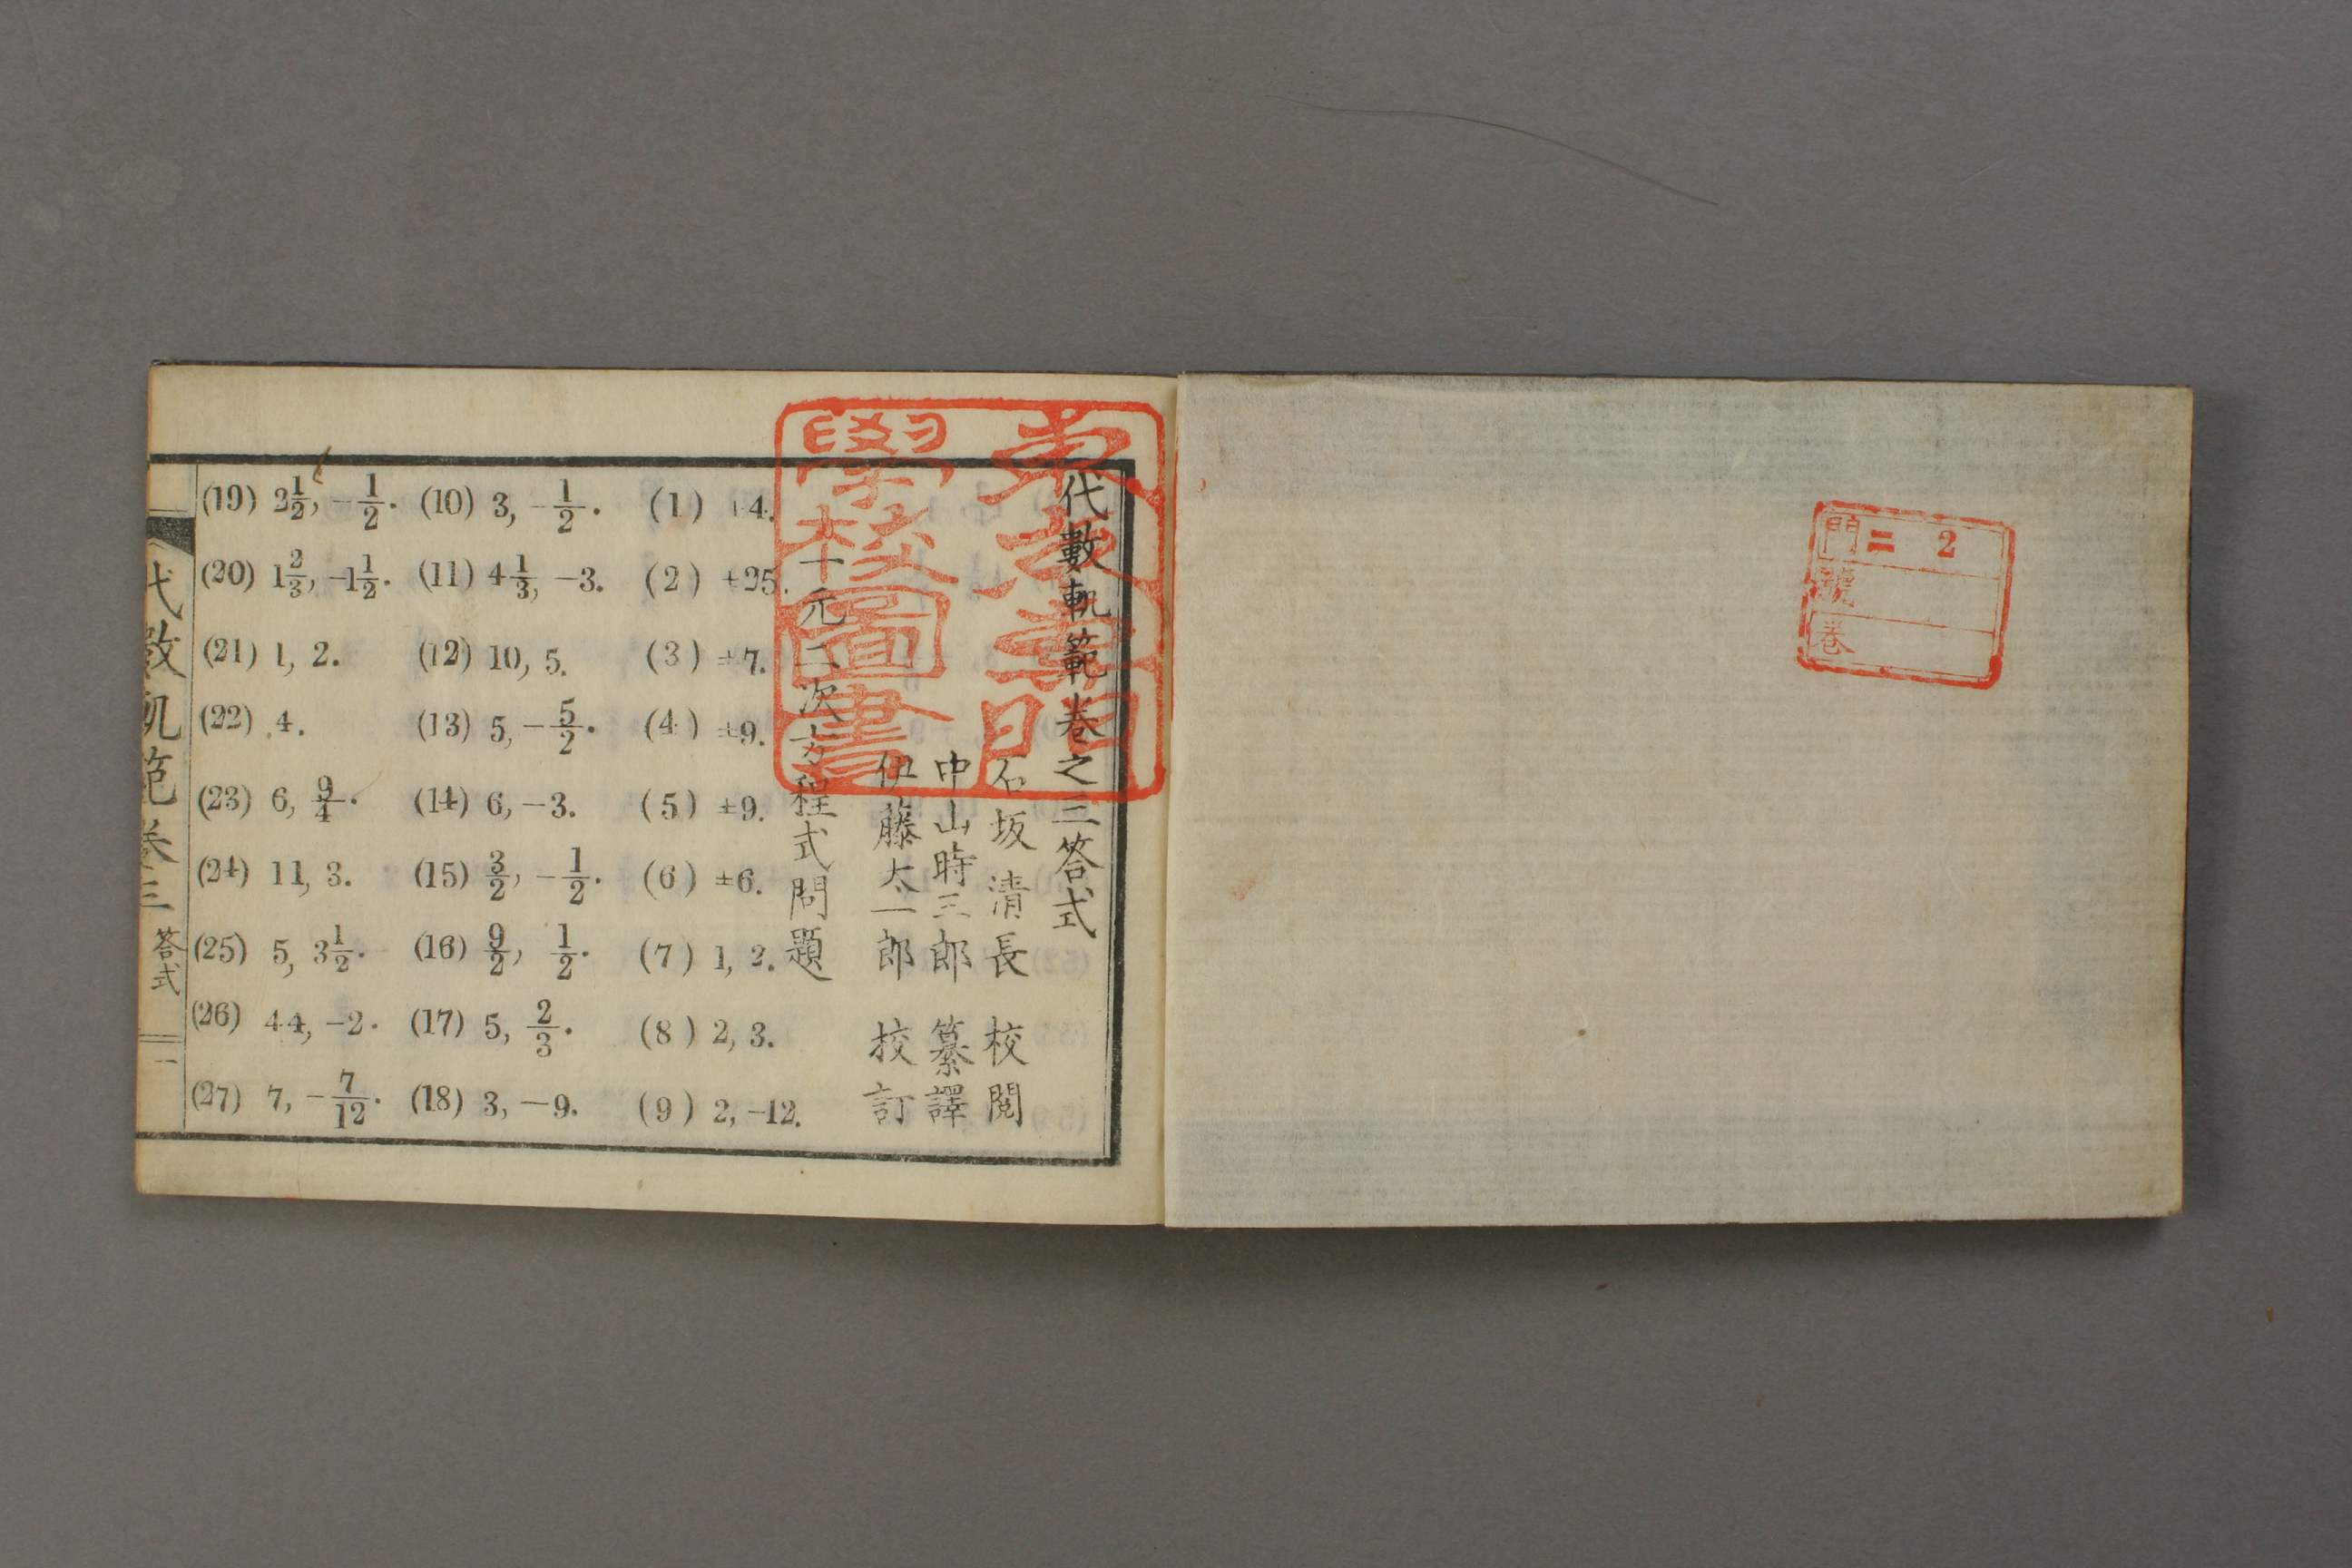 門 = 2
號
巻
代數軌範卷之三答式
石坂清長 校閲
中山時三郎 纂譯
伊藤太一郎 挍訂
一元二次方程式問題
(1) ±4.
(2) ±25.
(3) ±7.
(4) ±9.
(5) ±9.
(6) ±6.
(7) 1, 2.
(8) 2, 3.
(9) 2, -12.
(10) 3, -1/2.
(11) 4 1/3, -3.
(12) 10, 5.
(13) 5, -5/2.
(14) 6, -3.
(15) 3/2, -1/2.
(16) 9/2, 1/2.
(17) 5, 2/3.
(18) 3, -9.
(19) 2 1/2, -1/2.
(20) 1 2/3, -1 1/2.
(21) 1, 2.
(22) 4.
(23) 6, 9/4.
(24) 11, 3.
(25) 5, 3 1/2.
(26) 44, -2.
(27) 7, -7/12.
代數軌範卷三 答式 一
學校圖書